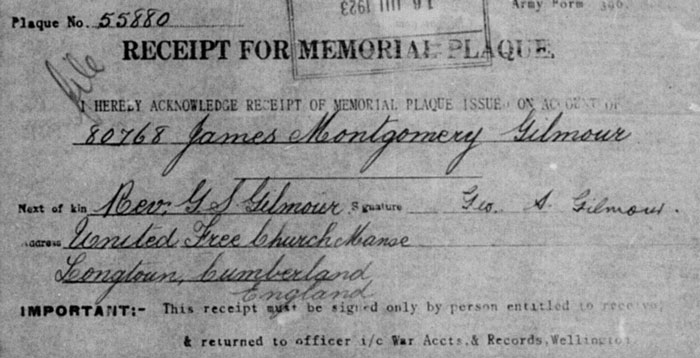 Plaque No. 55880
16 JUL 1923
Army Form
RECEIPT FOR MEMORIAL PLAQUE.
file
I HERELY ACKNOWLEDGE RECEIPT OF MEMORIAL PLAQUE ISSUED ON ACCOUNT OF
80768 James Montgomery Gilmour
Next of kin Rev. G S Gilmour Signature Geo. S. Gilmour.
Address United Free Church Manse
Longtown, Cumberland
England
IMPORTANT:- This receipt must be signed only by person entitled to receive,
& returned to officer i/c War Accts, & Records, Wellington